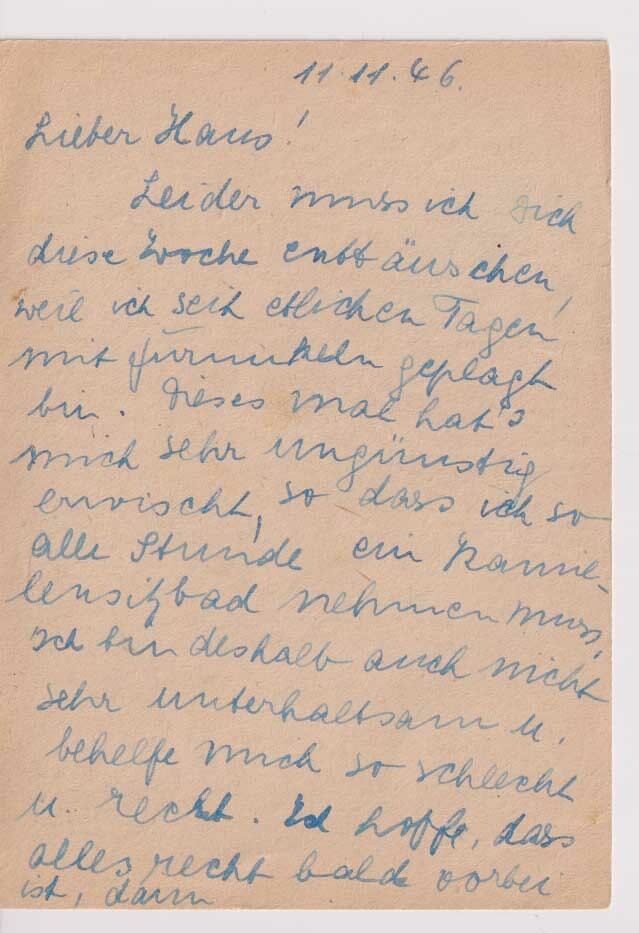 11.11.46.
Lieber Hans!
Leider muss ich dich
diese Woche enttäuschen,
weil ich seit etlichen Tagen
mit Furunkeln geplagt
bin. Dieses mal hat's
mich sehr ungünstig
erwischt, so dass ich so
alle Stunde ein Kamil-
lensitzbad nehmen muss,
Ich bin deshalb auch nicht
sehr unterhaltsam u.
behelfe mich so schlecht
u. recht. Ich hoffe, dass
alles recht bald vorbei
ist, dann